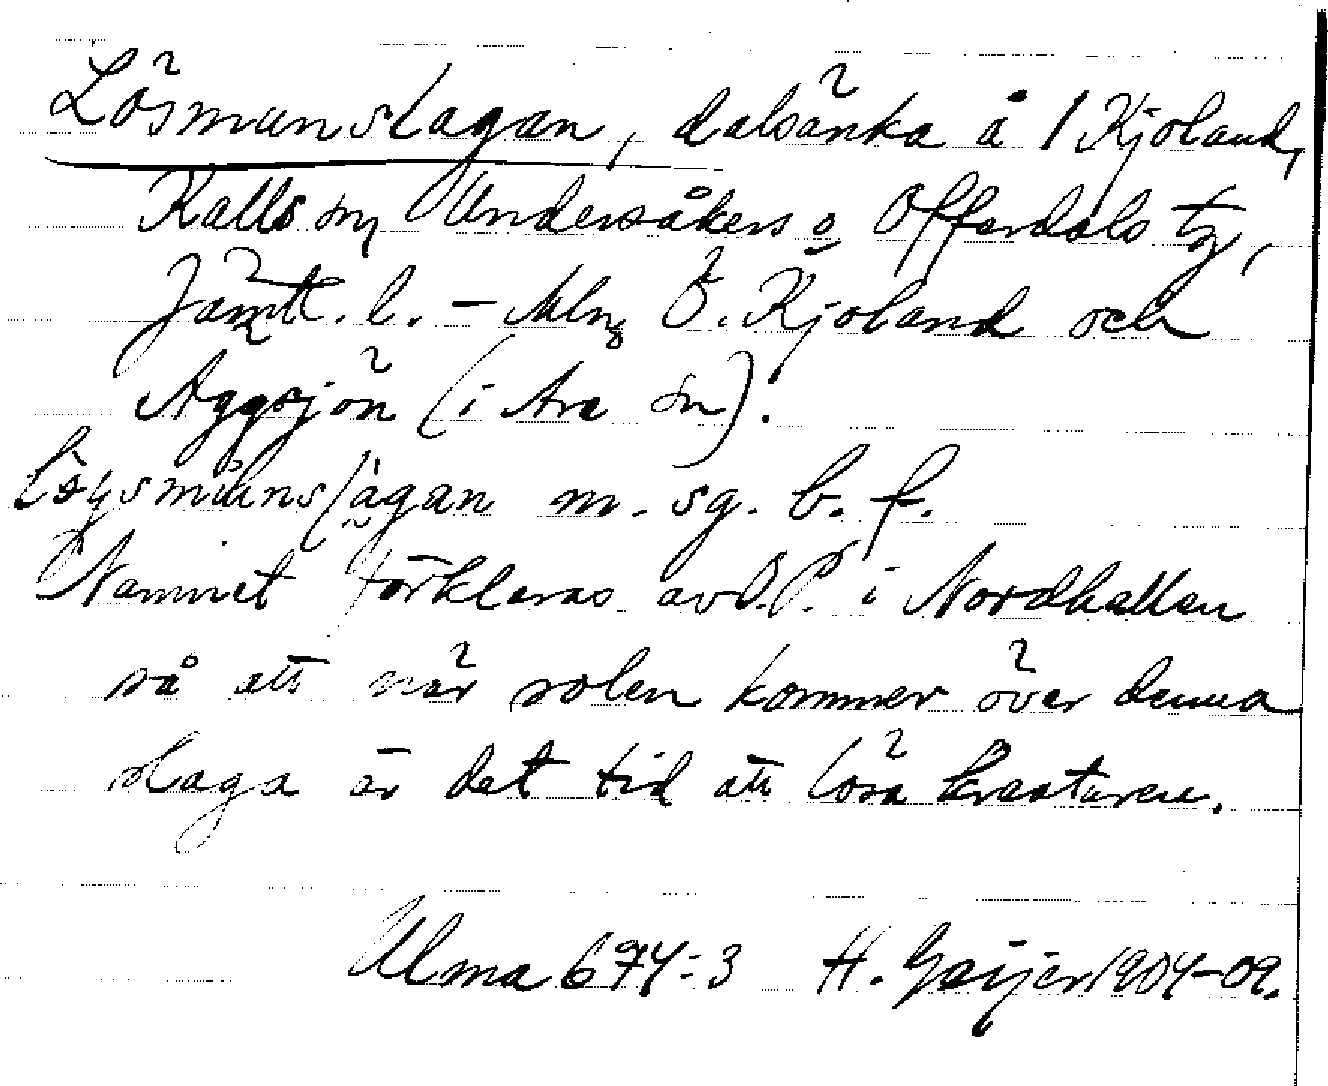 Lösmunslagan, dalsänka å 1 Kjoland,
Kalls sn, Undersåkers o Offerdals tg,
Jämtl. l. – Mln Ö. Kjoland och
Äggsjön (i Åre sn).
m. sg. b. f.
Namnet förklaras av O.P. i Nordhallen
så att när solen kommer över denna
slaga är det tid att lösa kreaturen.
Ulma 674:3 H. Geijer 1904–09.